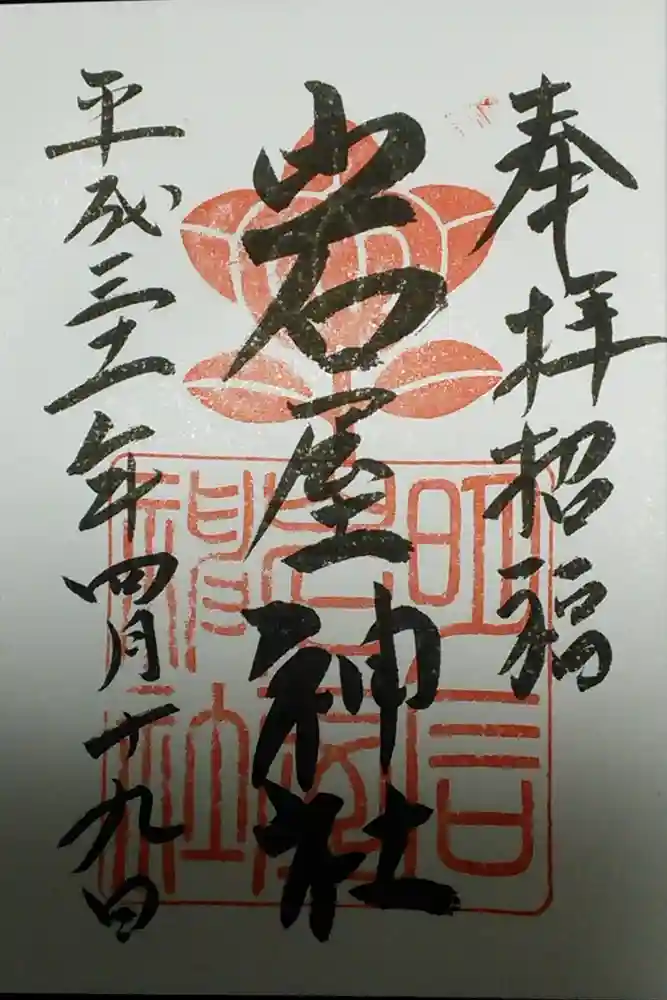 奉拝招福
岩屋神社
平成三十一年四月十九日